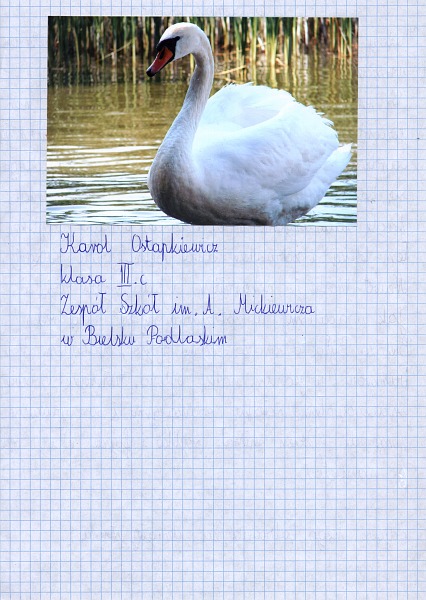 Karol Ostapkiewicz
klasa III.c
Zespół Szkół im. A. Mickiewicza
w Bielsku Podlaskim